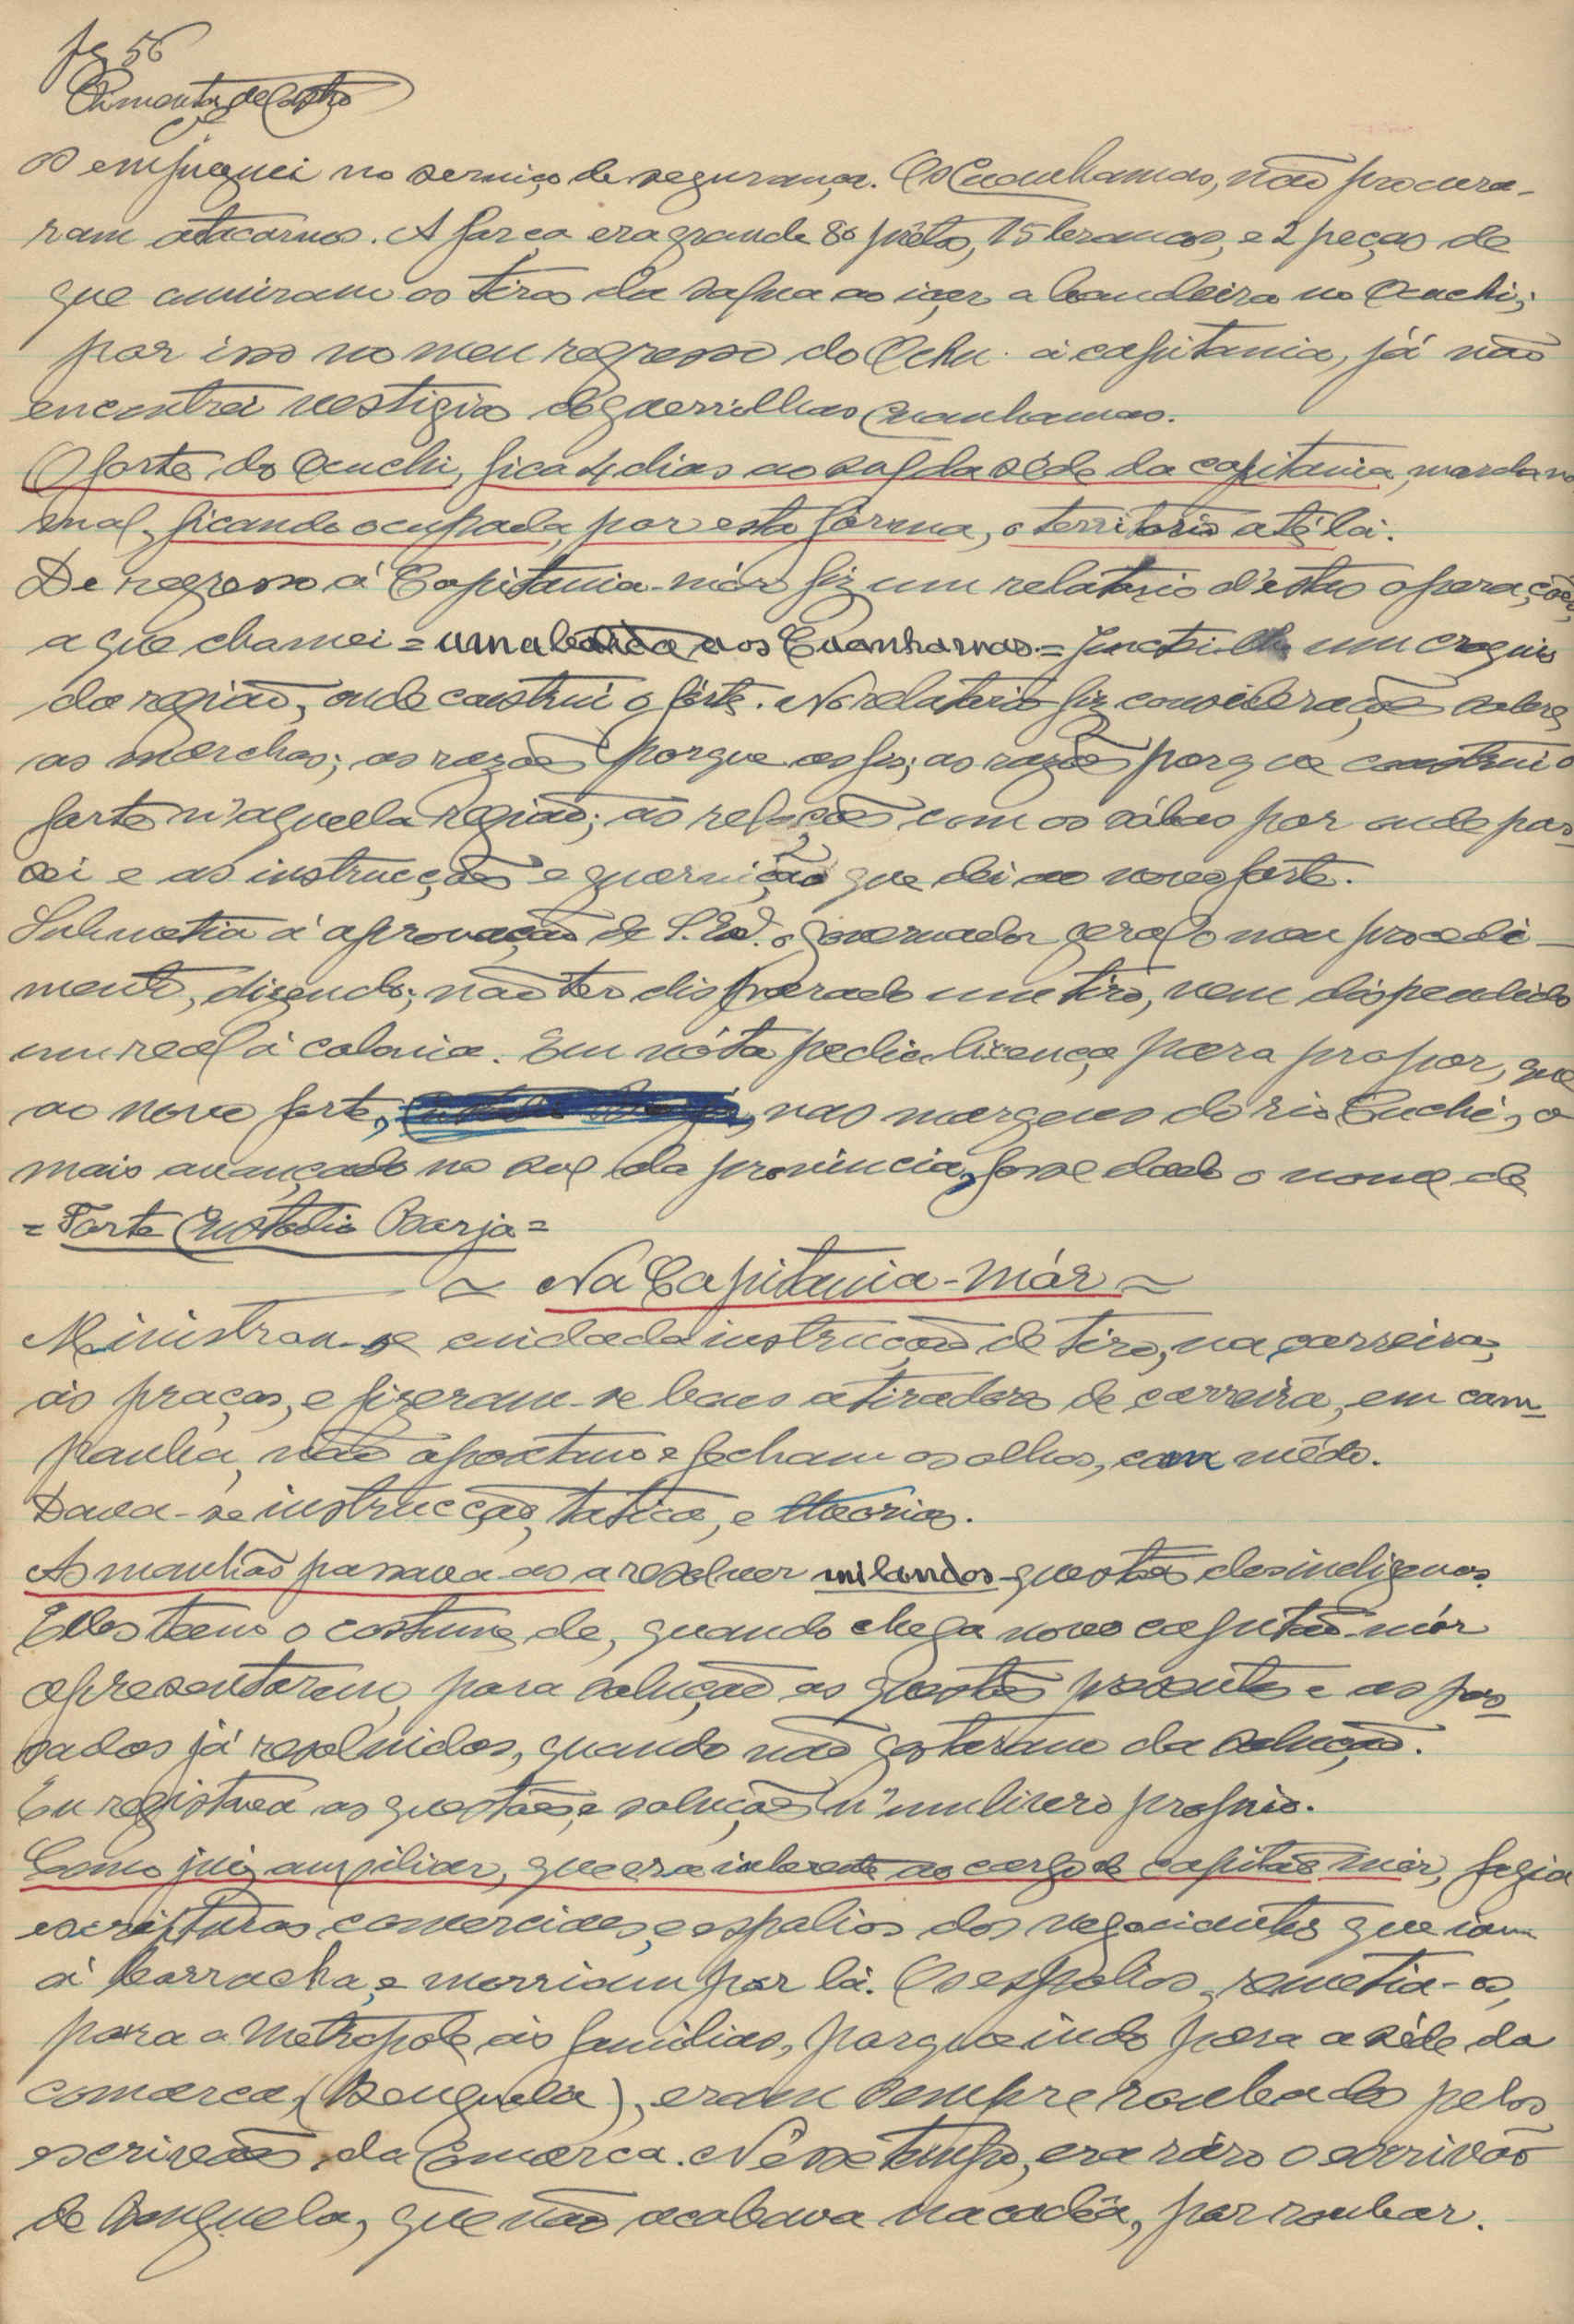 fg 56
Pimenta de Castro
os empreguei no serviço de segurança. Os Cuanhamas, não procura-
ram atacarnos. A força era grande 80 prêtos, 15 brancos, e 2 peças de
que ouviram os tiros da salva ao içar a bandeira no Cuchi;
por isso no meu regresso do á capitania, já não
encontrei vestigios de guerrilhas Cuanhamas.
O forte do Cuchi, fica 4 dias ao sul da séde da capitania,
mal, ficando ocupada, por esta fórma, o territorio até lá.
De regresso á Capitania-mór fiz um relatorio d'estas operações,
a que chamei = uma batida aos Cuanhamas = Junctei-lhe um croquis
da região, onde construi o forte. No relatorio fiz considerações sobre
as marchas; as razões porque as fiz; as razões porque construi o
forte n'aquela região; as relações com os sóbas por onde pas-
sei e as instrucções e guarnição que dei ao novo forte.
Submetia á aprovação de S. Exª. o governador geral o meu procedi-
mento, dizendo; não ter disparado um tiro, nem dispendido
um real á colonia. Em nóta pedia licença para propor, que
ao novo forte, nas margens do rio Cuchi, o
mais avançado no sul da provincia, fosse dado o nome de
= Forte Custodio Borja =
~ Na Capitania-Mór ~
Ministrou-se cuidada instrução de tiro, na carreira,
ás praças, e fizeram-se bons atiradores de carreira, em cam-
panha, não apontam e fecham os olhos, com mêdo.
Dava-se instrucção, tatica, e theorias.
As manhãs passava-as a resolver milandos-questões dos indigenas.
Elles teem o costume de, quando chega novo capitão-mór
apresentarem, para solução as questões presentes e as pas-
sados já resolvidos, quando não gostaram da solução.
Eu registava as questões, e soluções n'um livro proprio.
Como juiz auxiliar, que era inherente ao cargo de capitão mór, fazia
escripturas comerciaes, e espolios dos negociantes que iam
á borracha, e morriam por lá. Os espolios, remetia-os,
para a Metropole ás familias, porque indo para a séde da
comarca, (Benguela), eram sempre roubados pelos
escrivães, da Comarca. Nêsse tempo, era ráro o escrivão
de Benguela, que não acabava na cadêa, por roubar.